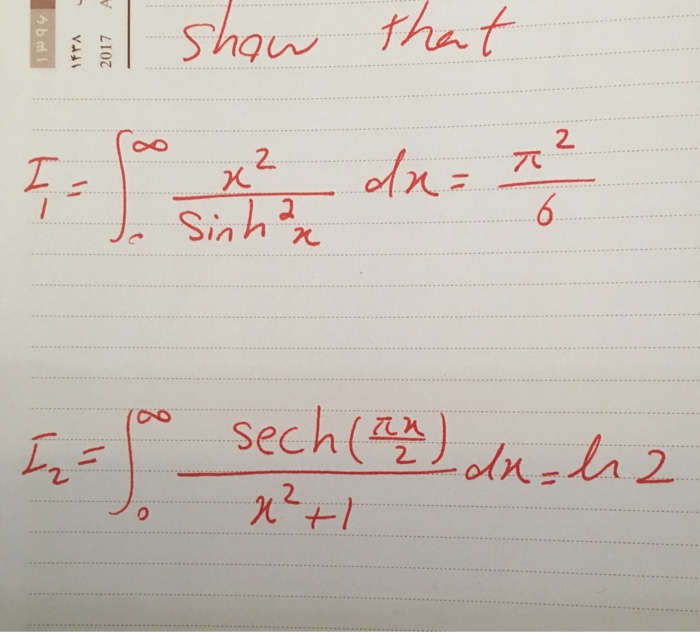 2017
۱۴۳۸
show that
I₁ = ∫₀^∞ x²/Sinh²x dx = π²/6
I₂ = ∫₀^∞ sech(πx/2)/(x²+1) dx = ln 2